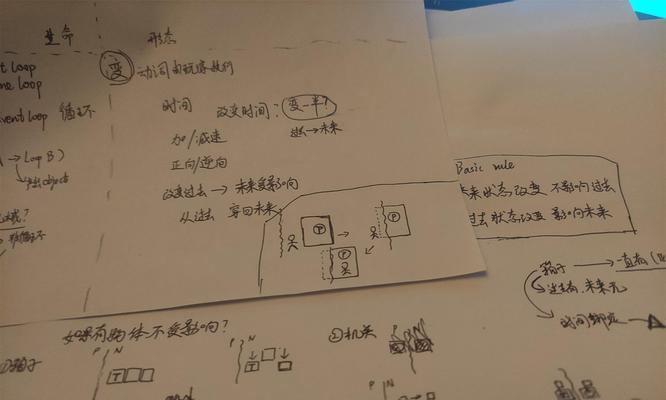 生命
形态
t loop
me loop
vent loop 循环
→ Loop B)
objects
变 动词由玩家执行
时间 改变时间: 变一半!
过去→未来
加/减速
正向/逆向
改变过去 → 未来受影响
从过去 穿回未来
T
T
T
Basic rule
未来状态改变 不影响过去
过去状态改变 影响未来
箱子 → 一直有
过去有, 未来无
时间绑定
如果有物体不受影响?
①箱子
P N
T
P N
T
②机关
P N
P N